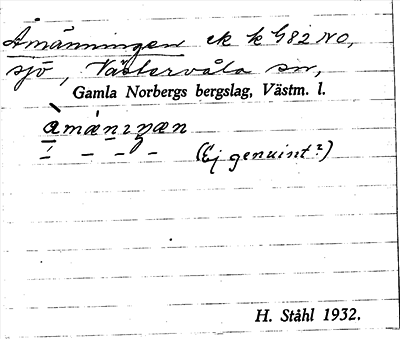 Åmänningen ek k G82 NO,
sjö, Västervåla sn,
Gamla Norbergs bergslag, Västm. l.
(Ej genuint?)
H. Ståhl 1932.